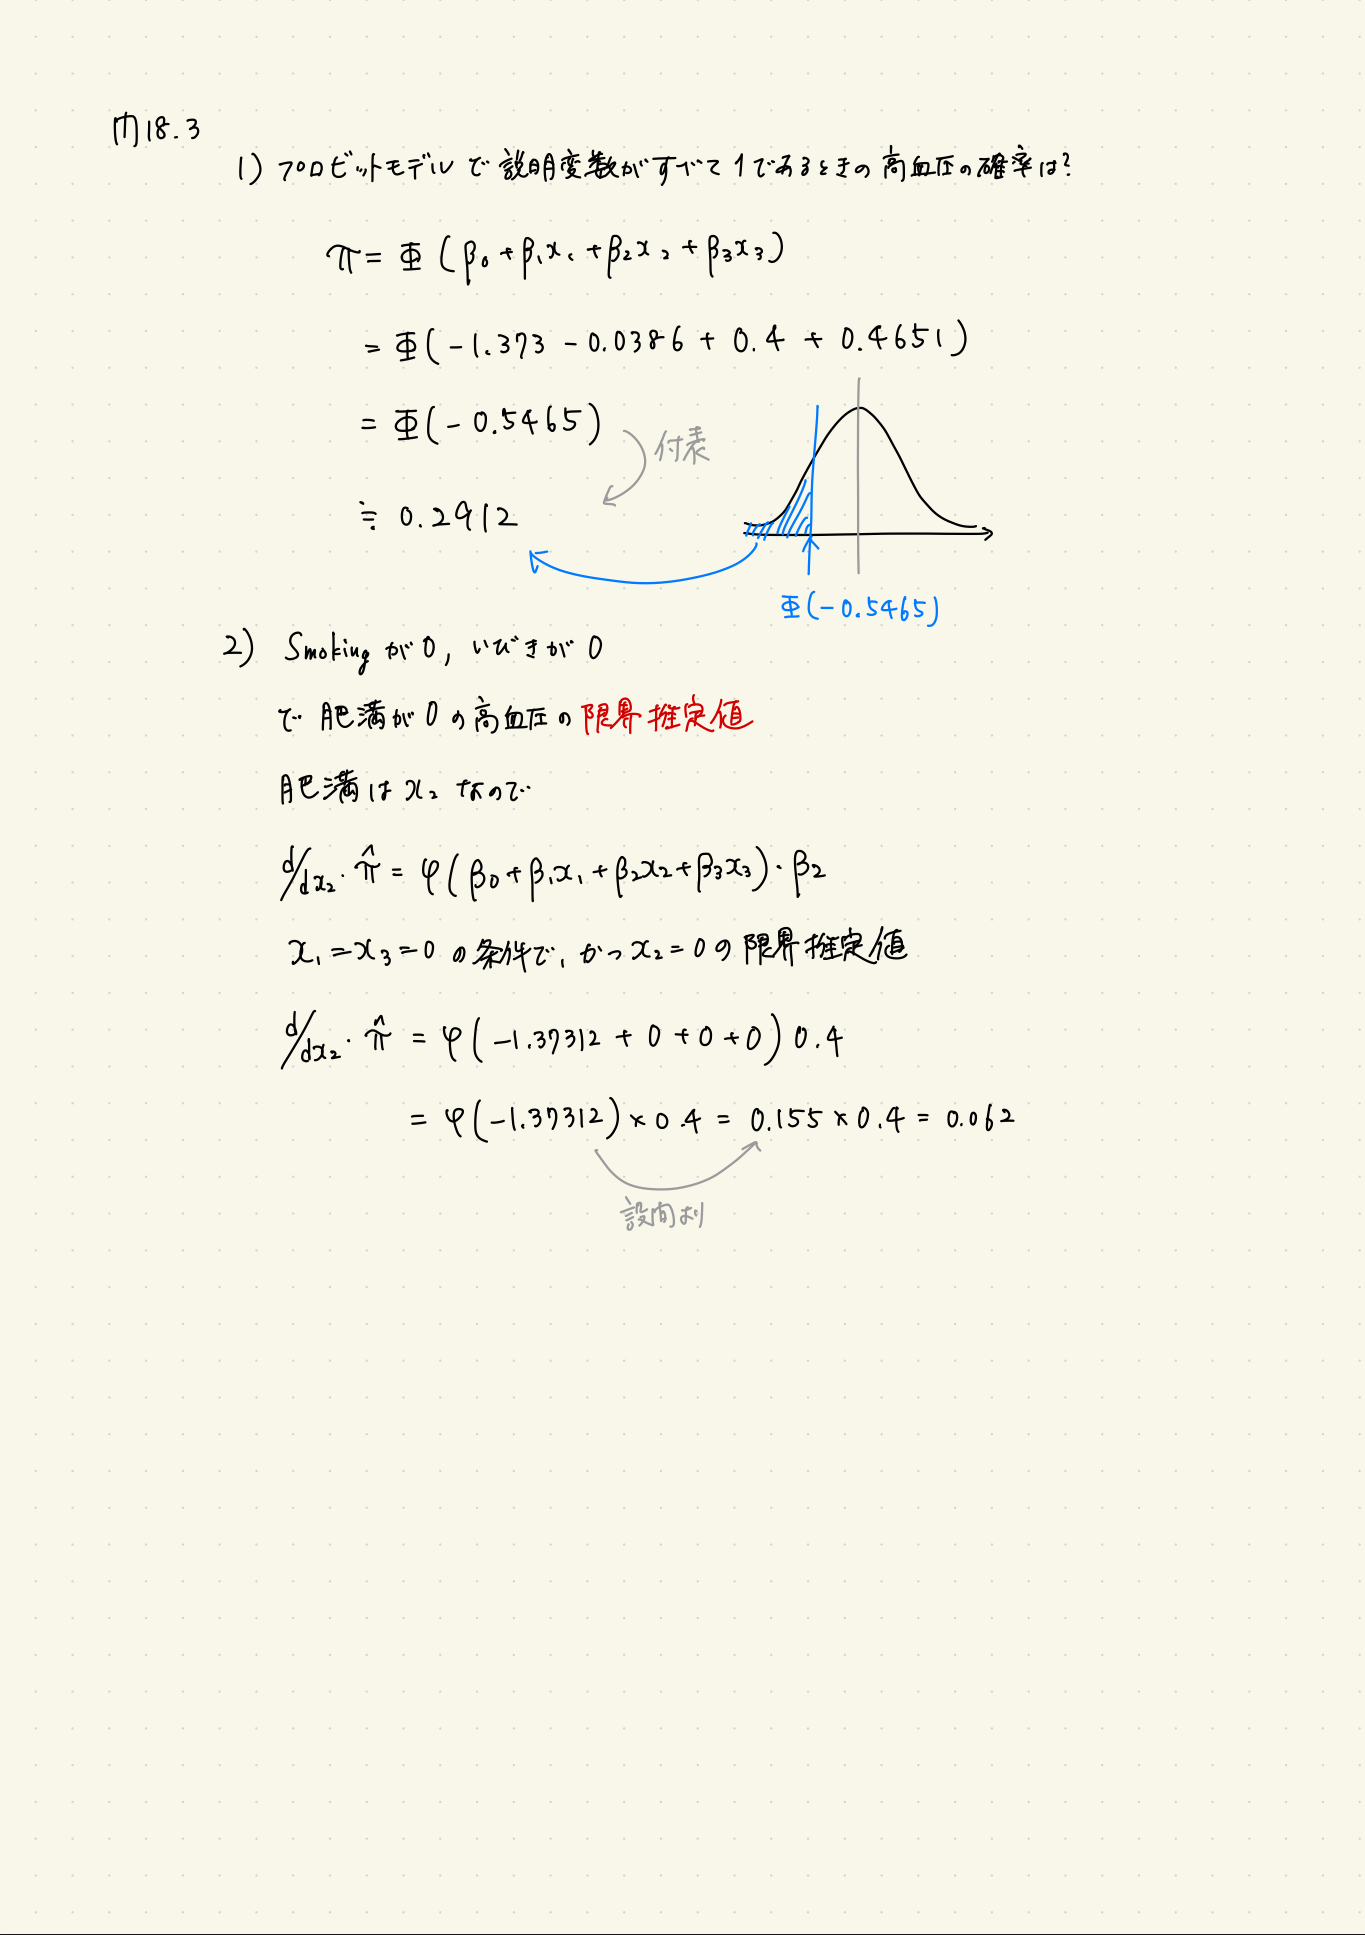 問18.3
1) プロビットモデルで説明変数がすべて1であるときの高血圧の確率は?
π = Φ(β₀+β₁x₁+β₂x₂+β₃x₃)
= Φ(-1.373 - 0.0386 + 0.4 + 0.4651)
= Φ(-0.5465)
付表
≒ 0.2912
Φ(-0.5465)
2) Smokingが0, いびきが0
で 肥満が0の高血圧の限界推定値
肥満は x₂ なので
d/dx₂・π̂ = φ(β₀+β₁x₁+β₂x₂+β₃x₃)・β₂
x₁=x₃=0 の条件で, かつ x₂=0の限界推定値
d/dx₂・π̂ = φ(-1.37312 + 0 + 0 + 0) 0.4
= φ(-1.37312)×0.4 = 0.155×0.4 = 0.062
設問より